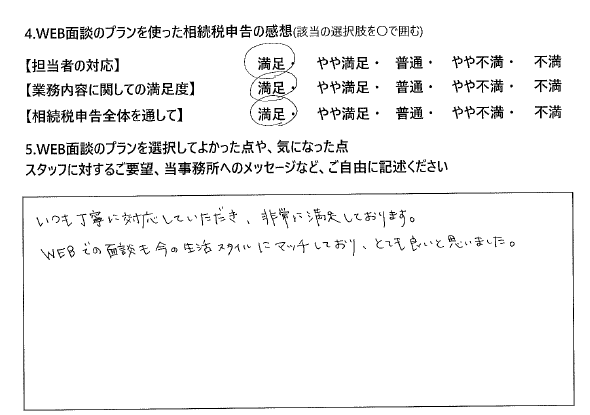 4.WEB面談のプランを使った相続税申告の感想(該当の選択肢を〇で囲む)
【担当者の対応】 満足・ やや満足・ 普通・ やや不満・ 不満
【業務内容に関しての満足度】 満足・ やや満足・ 普通・ やや不満・ 不満
【相続税申告全体を通して】 満足・ やや満足・ 普通・ やや不満・ 不満
5.WEB面談のプランを選択してよかった点や、気になった点
スタッフに対するご要望、当事務所へのメッセージなど、ご自由に記述ください
いつも丁寧に対応していただき、非常に満足しております。
WEBでの面談も今の生活スタイルにマッチしており、とても良いと思いました。